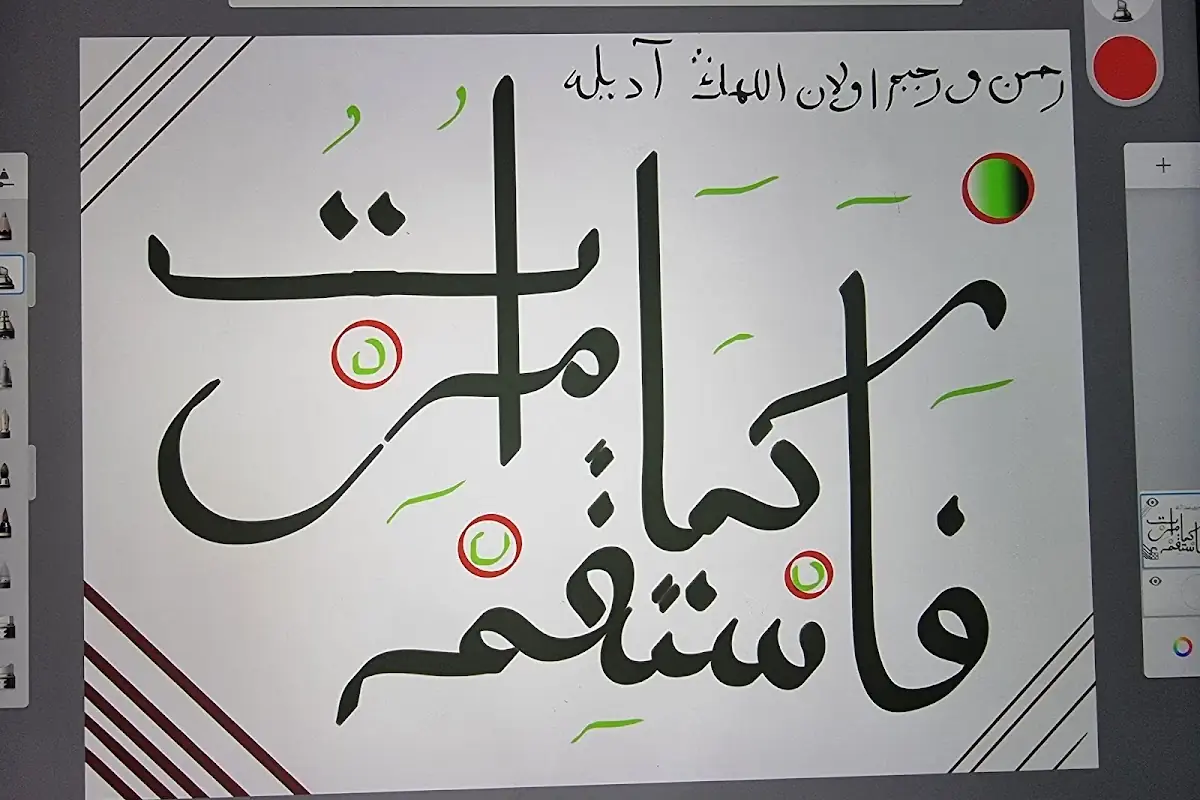 رحمن و رحيم اولان اللهڭ آديله
فَاسْتَقِمْ كَمَا اُمِرْتُ